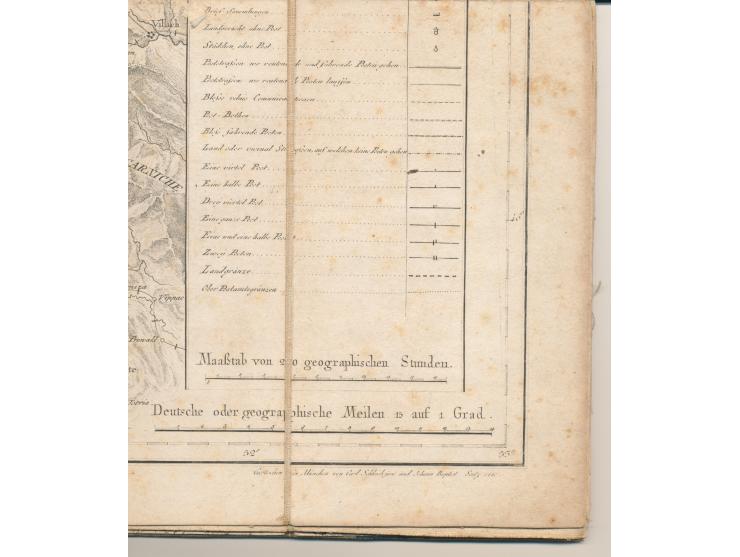 Brief Sammlungen
Landgericht ohne Post
Städchen, ohne Post
Poststraßen wo reutende und fahrende Posten gehen
Poststraßen wo reutende Posten lauffen
Blose neben Communicationen
Post-Bothen
Blose fahrende Posten
Land oder vicinal Straßen, auf welchen keine Posten gehen
Eine virtel Post
Eine halbe Post
Drey virtel Post
Eine ganze Post
Eine und eine halbe Post
Zwey Posten
Landgränze
Ober Postamtsgränzen
Maaßtab von 200 geographischen Stunden.
Deutsche oder geographische Meilen 15 auf 1 Grad.
Villach
CARNICHE
Vippac
45°
52°
53°
in München von Carl und Johann Baptist Seitz